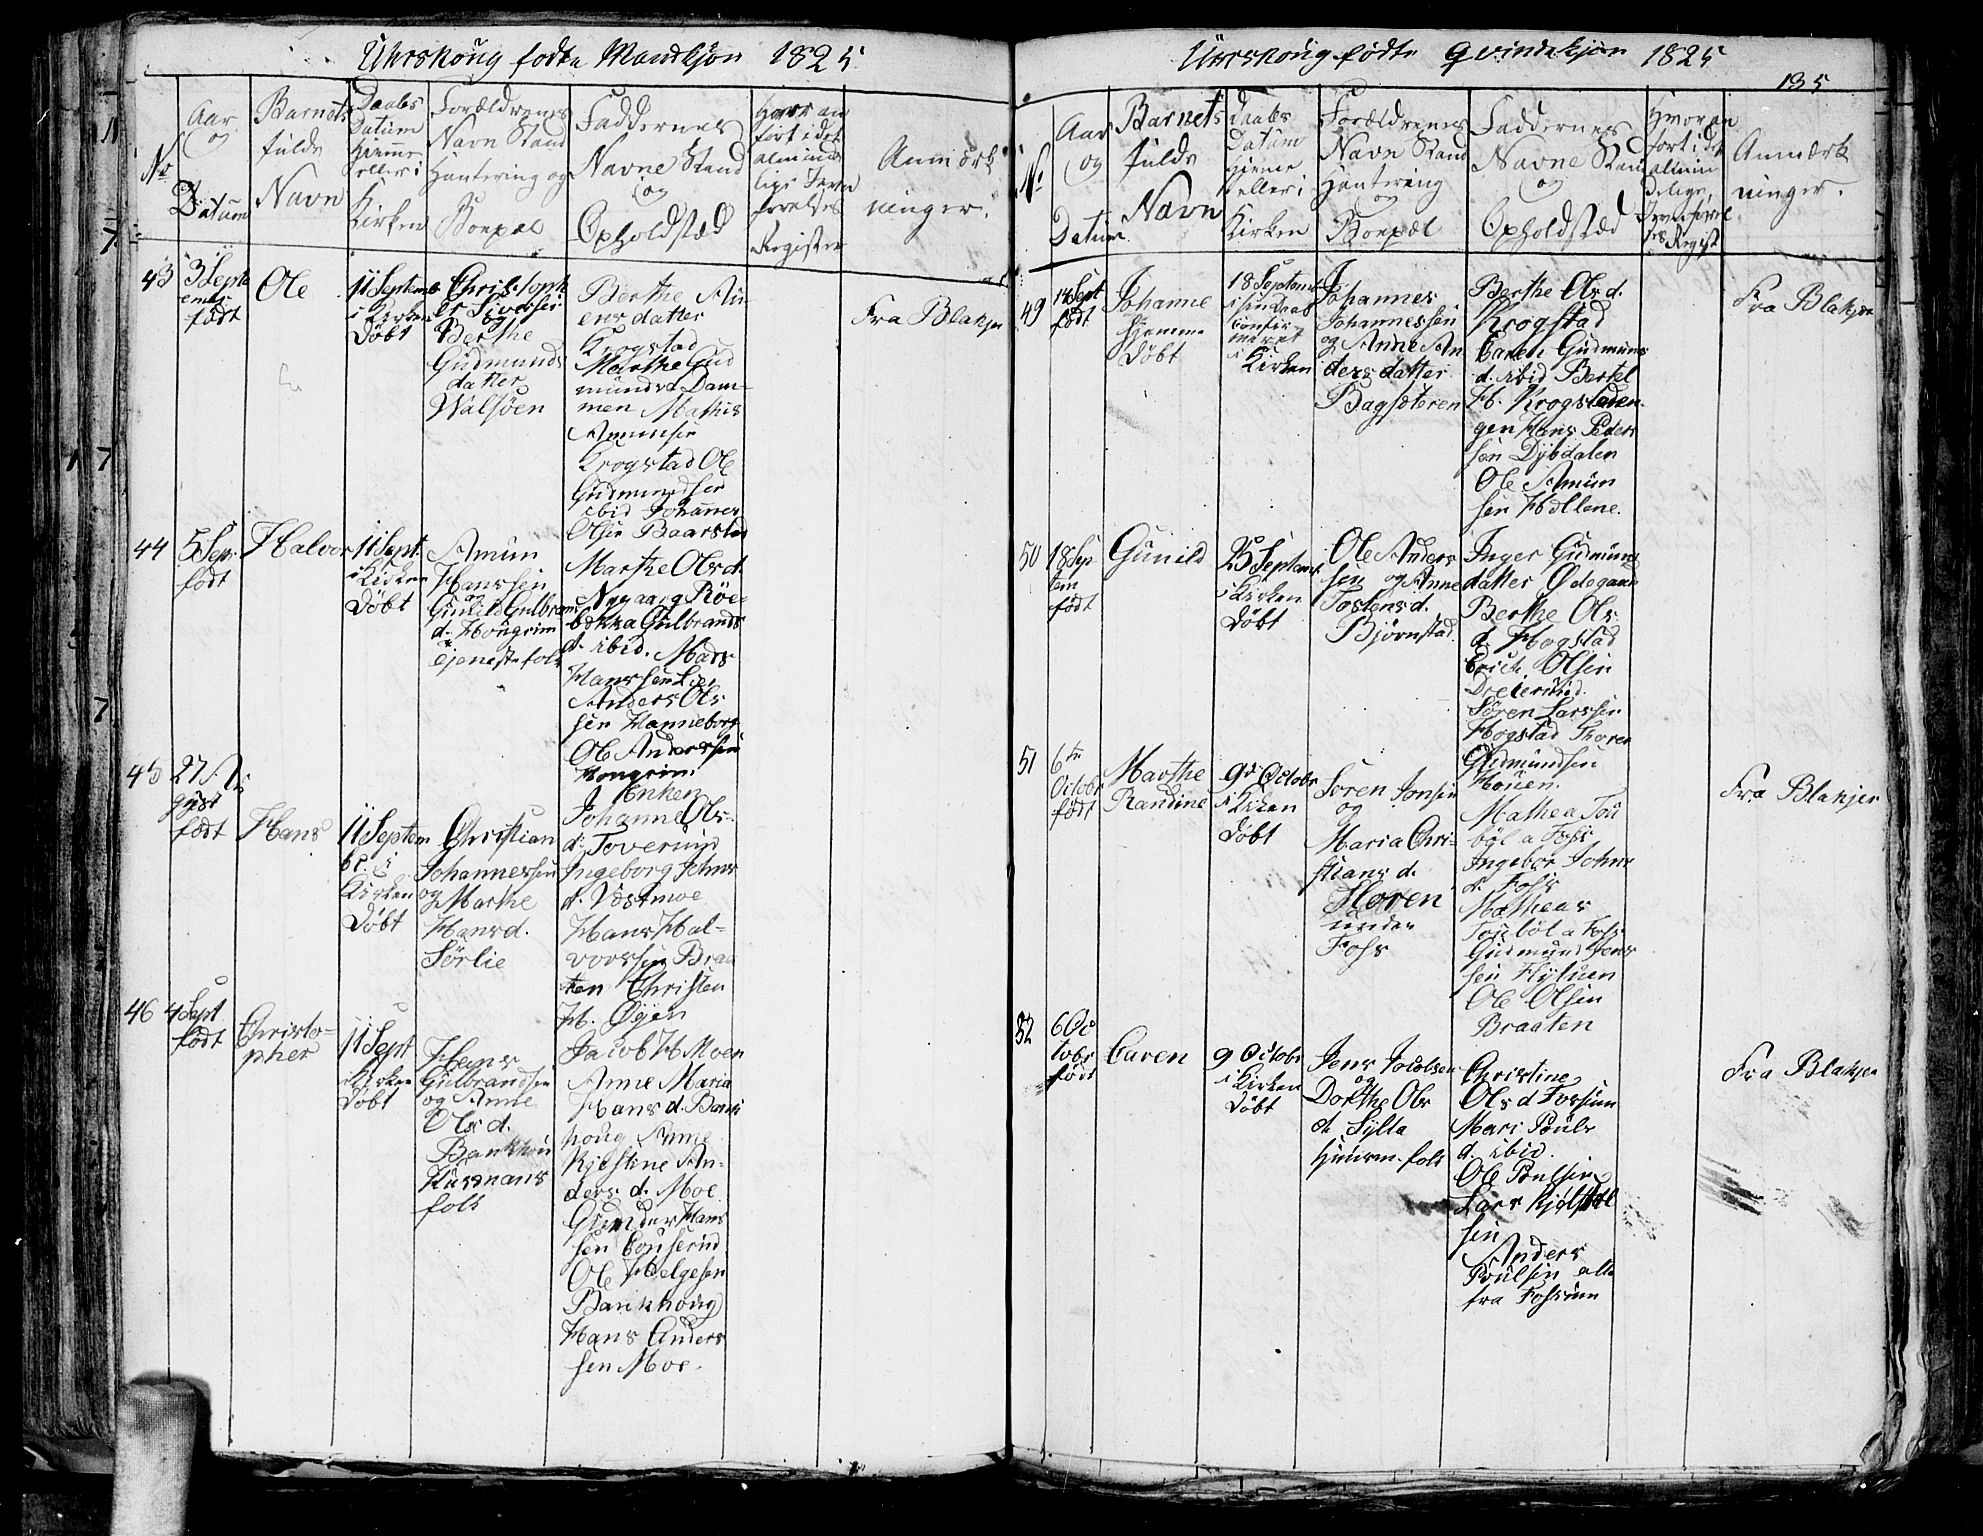 Uhrskoug fødte Mandkjøn 1825
No
Aar
og
Datum
Barnets
fulde
Navn
Daabs
Datum
Hiemme
eller i
Kirken
Forældrenes
Navn Stand
Handtering og
Boepæl
Faddernes
Navne Stand
og
Opholdstæd
Hvor an
ført i det
almind
lige
Register
Anmærk
ninger.
43
3 Septe
embr
født
Ole
11 Septemb
i Kirken
Døbt
Christoph
er Siversen
og
Berthe
Gudmunds
datter
Walsøen
Berthe Am
ens datter
Krogstad
Marthe Gud
mundsd. Dam-
men Mathis
Amunsen
Krogstad Ole
Gudmundsen
ibid Johannes
Olsen Baarstad
Fra Blakjer
44
5 Sep.
født
Halvor
11 Sept.
i Kirken
Døbt
Amun
Hanssen
og
Gunild Gulbrans
d. Hougrim
tjenestefolk
Marthe Olsd.
Nygaarg Röe-
bekka Gulbrands
d. ibid. Mads
Hanssen Lier
Anders Ols
sen Hanneborg
Ole Anderssen
Hougrim
45
27 Au
gust
født
Hans
11 Septem
br. i
Kirken
Døbt
Christian
Johannessen
og Marthe
Hansd.
Sörlie
Enken
Johanne Ols.
d. Toverud
Ingeborg Johns
d. Vestmoe
Hans Hal-
vorsen Braa
ten Christen
H. Øyen
46
4 Sept
født
Christo-
pher
11 Sept
i Kirken
Døbt
Hans
Gulbrandsen
og Anne
Olsd.
Bankhou
Husmans
folk
Jacob H Moen
Anne Maria
Hansd. Bank
houg Anne
Kjestine An-
ders. d. Moe
Gunder Hans
sen Couserud
Ole Helgesen
Bankhoug
Hans Anders
sen Moe.
Uhrskoug fødte Qvindekjøn 1825
135
No
Aar
og
Datum
Barnets
fulde
Navn
Daabs
Datum
Hieme
eller i
Kirken
Forældrenes
Navn Stand
Hantering
og
Boepæl
Faddernes
Navne Stand
og
Opholdstæd
Hvor an
ført i det
almin
delige
Jevnførel
ses Regist
Anmærk
ninger.
49
14 Sept
født
Johanne
hjemme
Døbt
18 Septemb
i sin Daab
confir
meret
i Kirken
Johannes
Johannessen
og Anne An
ders datter
Bagsæteren
Berthe Olsd.
Krogstad
Caren Gudmuns
d. ibid Bertel
H. Krogstaden
gen Hans Peder
sen Dybdalen
Ole Amun
sen Hellene.
Fra Blakjer
50
18 Sep
tem
født
Gunild
25 Septemb
i Kirken
Døbt
Ole Anders
sen og Anne
Tostensd.
Bjørnstad
Inger Gudmuns
datter Ødegaard
Berthe Ols
d. Hogstad
Erich Olsen
Dreierud.
Søren Larssen
Hogstad Thoren
Gudmundsen
Houen.
51
6te
Octobr
født
Marthe
Randine
9de Octobr
i Kirken
Døbt
Søren Jonsen
og
Maria Chri-
stians d.
Horen
under
Foss
Mathea Tou
böl a Foss
Ingebor Johns
d. Foss
Matheas
Touböl a Foss
Gudmund Jens
sen Flytuen
Ole Olsen
Braaten
Fra Blakjer
52
6 Oc
tobr
født
Caren
9 Octobr
i Kirken
Døbt
Jens Jacobsen
og
Dorthe Ols
d. Sylta
Huusm. folk
Christine
Olsd Fossum
Mari Pouls
d. ibid.
Ole Poulsen
Lars Kjelstad
sen
Anders
Poulsen alle
fra Fossum
Fra Blakjer